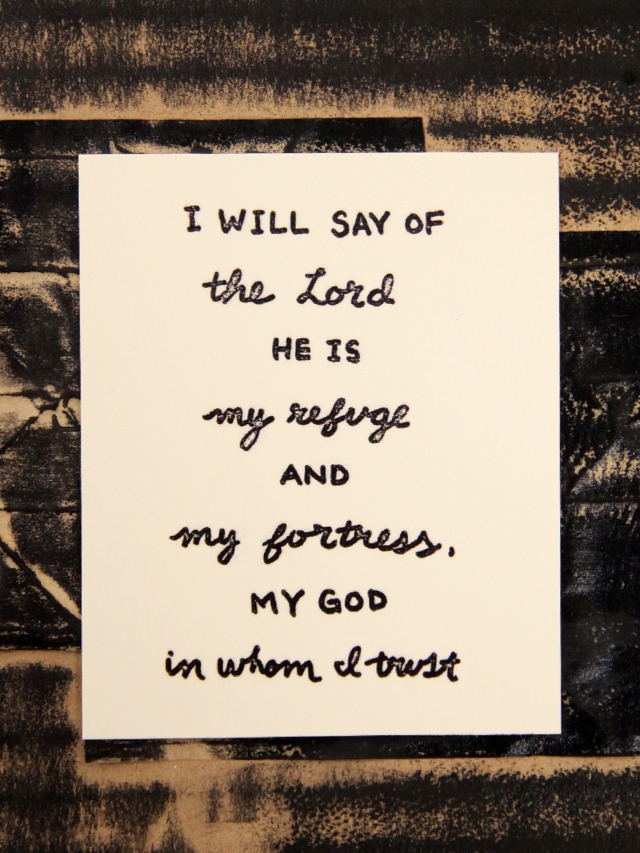 I WILL SAY OF
the Lord
HE IS
my refuge
AND
my fortress,
MY GOD
in whom I trust